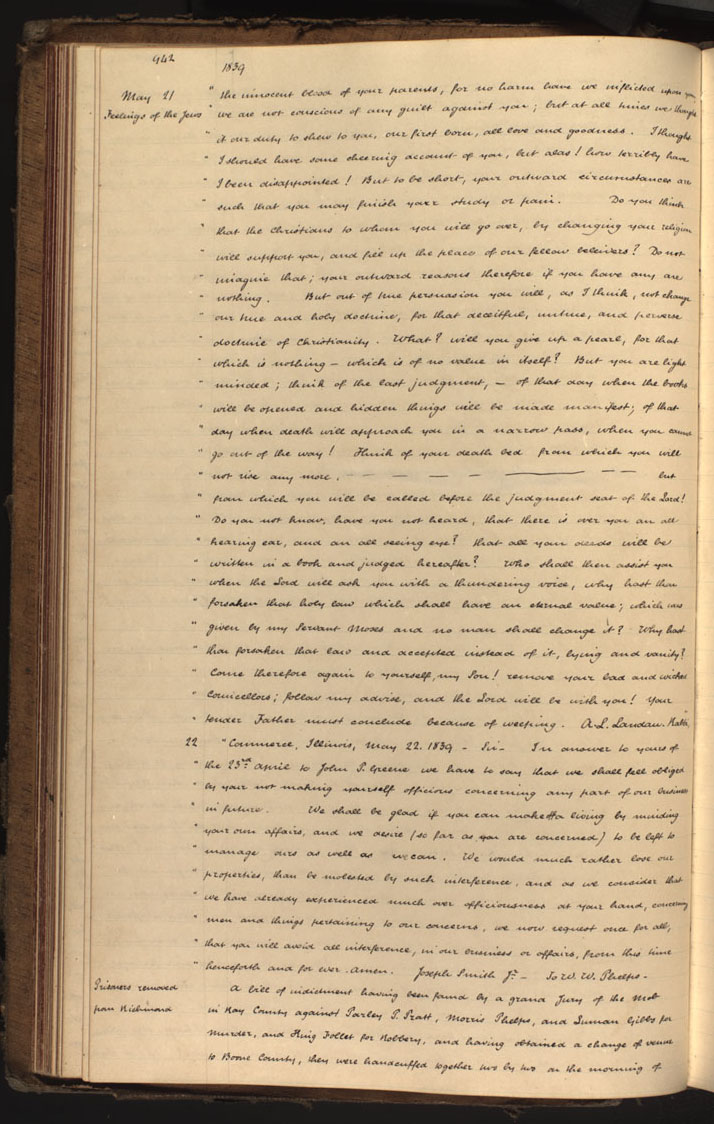 942
1839
May 21
Feelings of the Jews
" the innocent blood of your parents, for no harm have we inflicted upon you
" we are not conscious of any guilt against you; but at all times we thought
" it our duty to shew to you, our first born, all love and goodness. I thought
" I should have some cheering account of you, but alas! how terribly have
" I been disappointed! But to be short, your outward circumstances are
" such that you may finish your study or pain. Do you think
" that the Christians to whom you will go over, by changing your religion
" will support you, and fill up the place of our fellow beleivers? Do not
" imagine that; your outward reasons therefore if you have any are
" nothing. But out of true persuasion you will, as I think, not change
" our true and holy doctrine, for that deceitful, untrue, and perverse
" doctrine of Christianity. What? will you give up a pearl, for that
" which is nothing – which is of no value in itself? But you are light
" minded; think of the last judgment, – of that day when the books
" will be opened and hidden things will be made manifest; of that
" day when death will approach you in a narrow pass, when you cannot
" go out of the way! Think of your death bed from which you will
" not rise any more, — — — — — — — but
" from which you will be called before the judgment seat of the Lord!
" Do you not know, have you not heard, that there is over you an all
" hearing ear, and an all seeing eye? that all your deeds will be
" written in a book and judged hereafter? Who shall then assist you
" when the Lord will ask you with a thundering voice, why hast thou
" forsaken that holy law which shall have an eternal value; which was
" given by my Servant Moses and no man shall change it? Why hast
" thou forsaken that law and accepted instead of it, lying and vanity?
" Come therefore again to yourself, my Son! remove your bad and wicked
" Councellors; follow my advise, and the Lord will be with you! Your
" tender Father must conclude because of weeping. A. L. Landau. Rabbi,
22 " Commerce, Illinois, May 22. 1839 – Sir – In answer to yours of
" the 23rd April to John P. Greene we have to say that we shall feel obliged
" by your not making yourself officious concerning any part of our business
" in future. We shall be glad if you can make a living by minding
" your own affairs, and we desire (so far as you are concerned) to be left to
" manage ours as well as we can. We would much rather lose our
" properties, than be molested by such interference, and as we consider that
" we have already experienced much over officiousness at your hand, concerning
" men and things pertaining to our concerns, we now request once for all,
" that you will avoid all interference, in our business or affairs, from this time
" henceforth and for ever. Amen. Joseph Smith Jr – To W. W. Phelps –
Prisoners removed
from Richmond
A bill of indictment having been found by a grand Jury of the Mob
in Ray County against Parley P. Pratt, Morris Phelps, and Luman Gibbs for
murder, and King Follet for Robbery, and having obtained a change of venue
to Boone County, they were handcuffed together two by two on the morning of